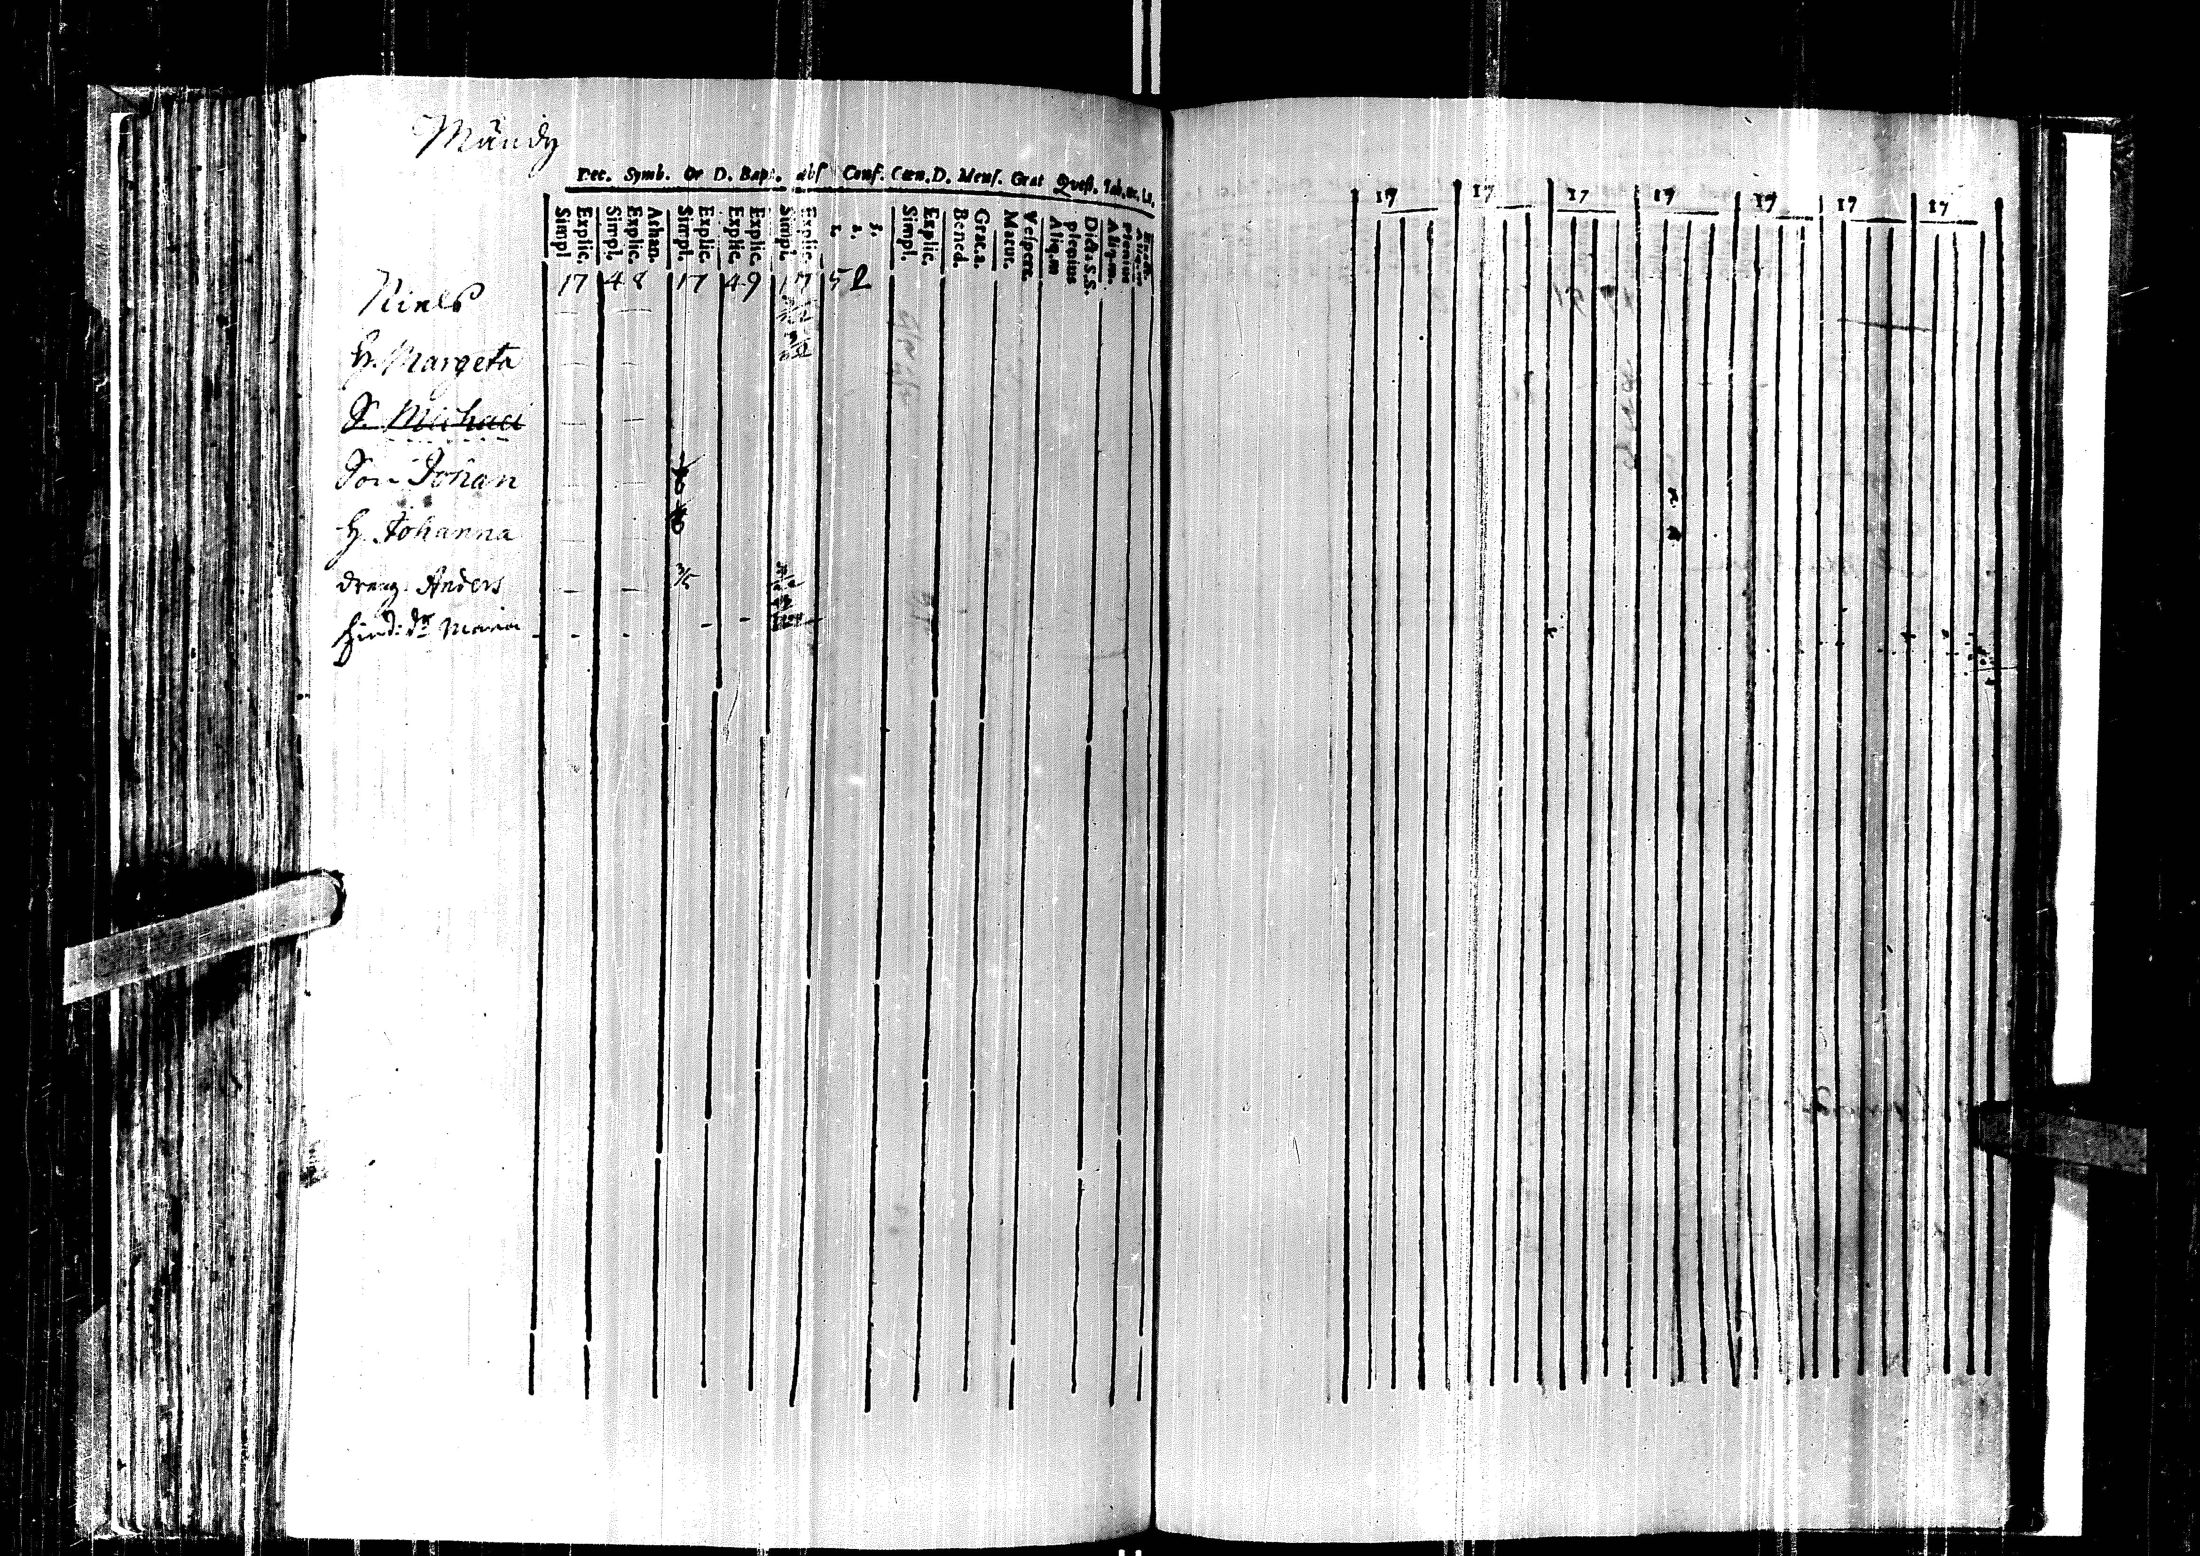 Mündy
Dec. Symb. Or D. Bapt. abs Conf. Cœn. D. Mens. Grat Quest. Tab.
Simpl Explic. Simpl. Explic. Athan. Simpl. Explic. Explic. Explic. Simpl. Explic. 1. 2. 3. Simpl. Explic. Bened. Grat.a. Matut. Vespere. Aliq.m plenius Dict. S.S. Aliq.m. Plenius
17 48 17 49 17 52
Niels
H. Margeta
S. Michael
Son Johan
H. Johanna
dreng. Anders 3/5
Maria
17 17 17 17 17 17 17